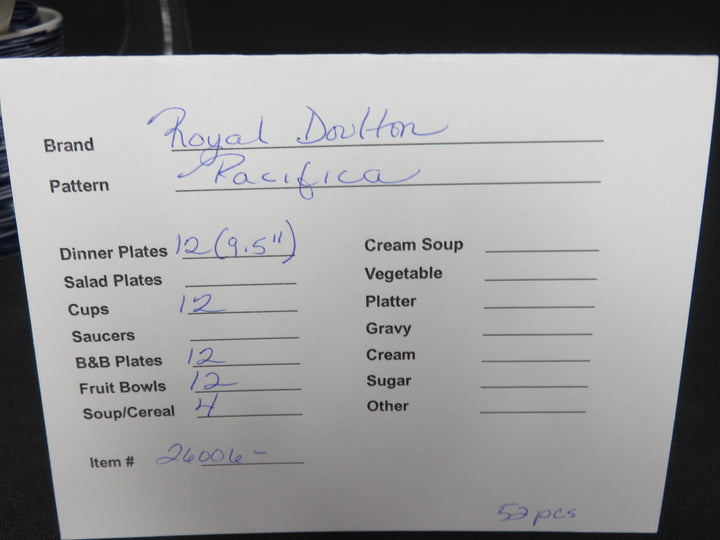 Brand Royal Doulton
Pattern Pacifica
Dinner Plates 12 (9.5")
Salad Plates
Cups 12
Saucers
B&B Plates 12
Fruit Bowls 12
Soup/Cereal 4
Item # 26006-
Cream Soup
Vegetable
Platter
Gravy
Cream
Sugar
Other
52 pcs